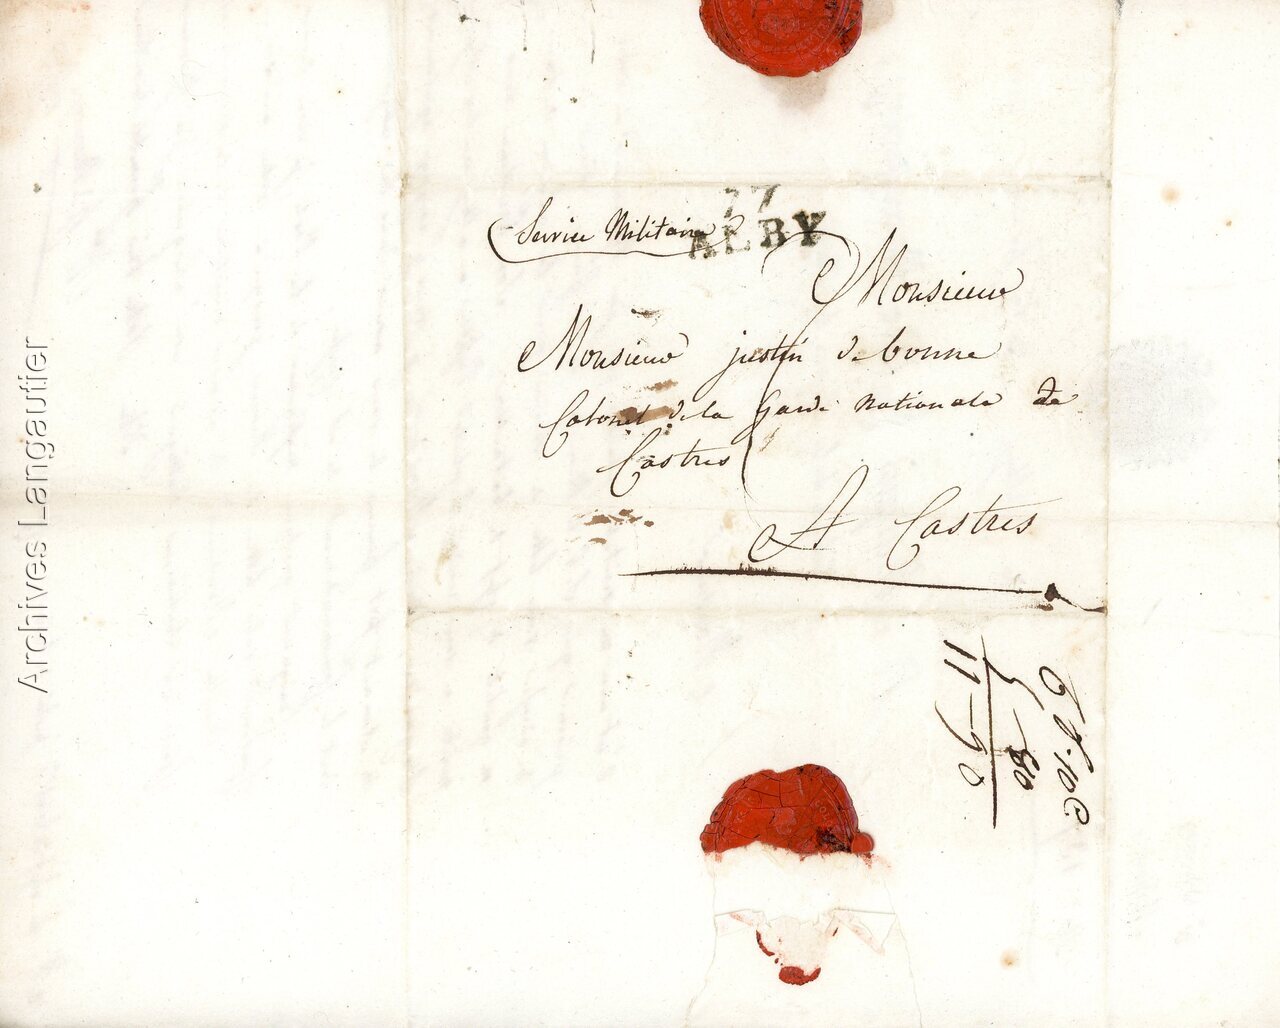 77
ALBY
Service Militaire
Monsieur
Monsieur justin de bonne
Colonel de la garde nationale de
Castres
A Castres
6 f. 10 c.
5 - 80
11 - 90
Archives Langautier